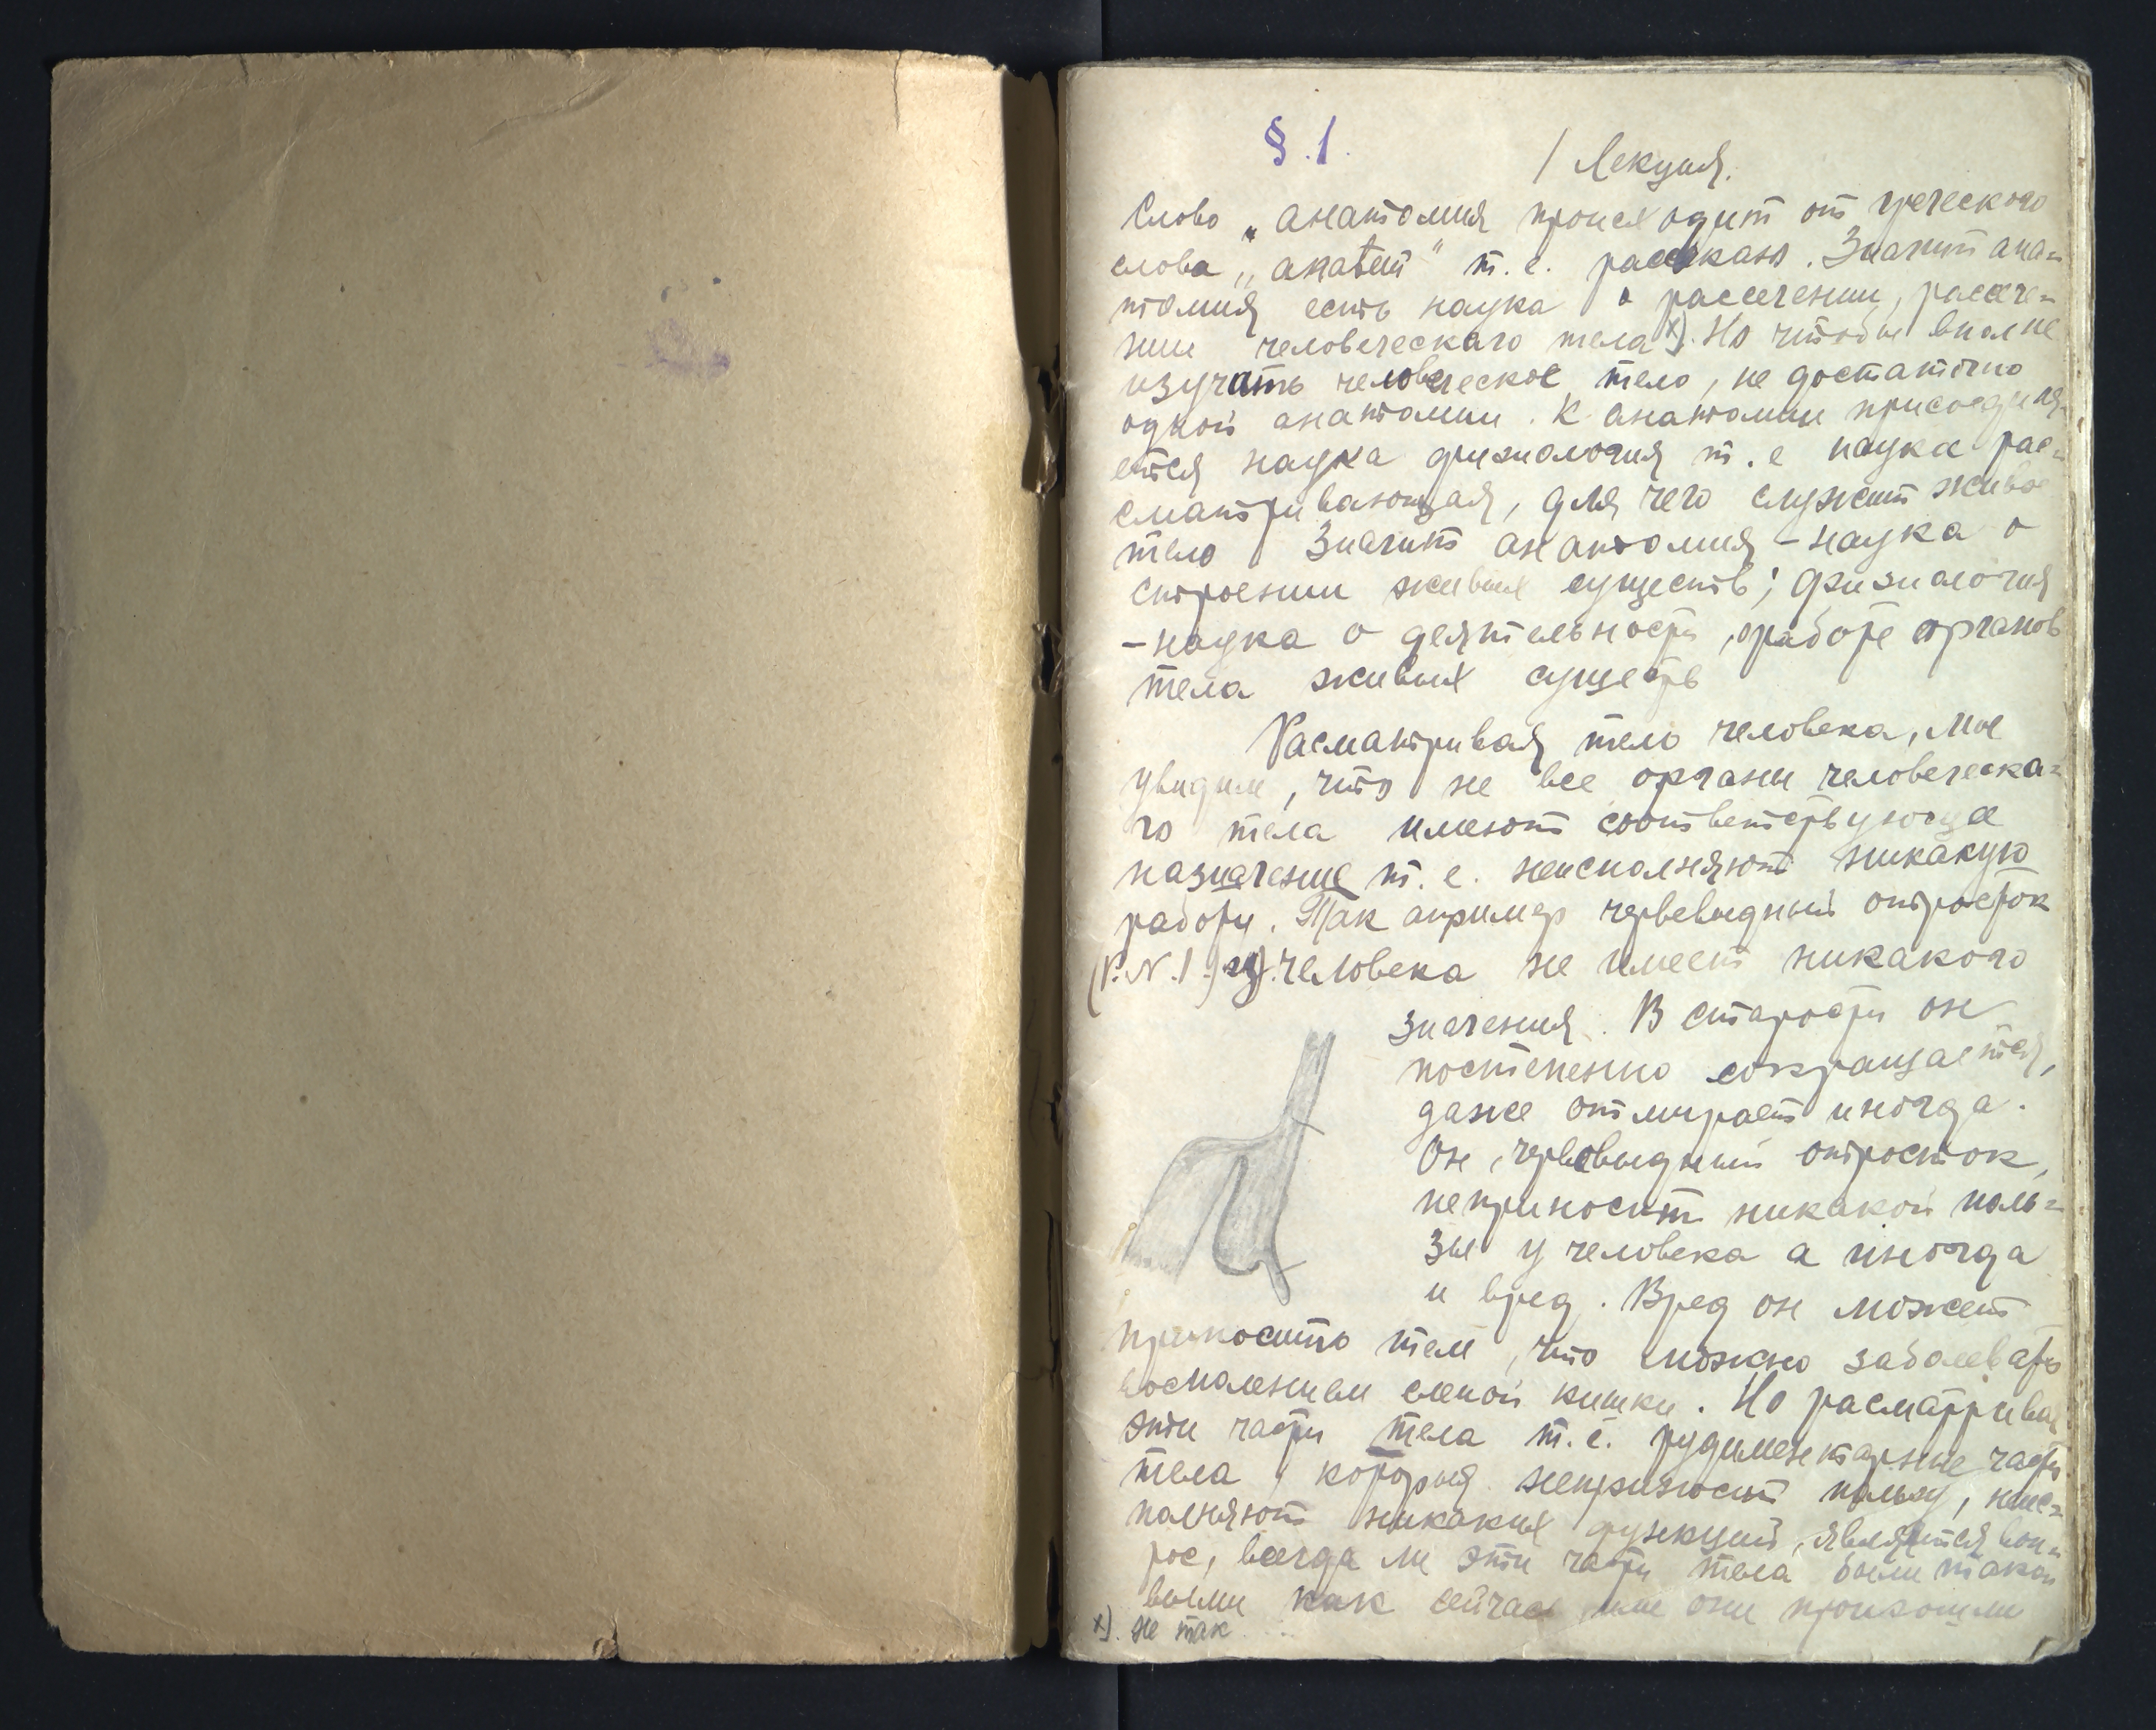 §.1.
/ Лекция.
Слово „анатомия происходит от греческого
слова „анатеш" т.е. рассекаю. Значит ана=
томия есть наука о рассечении, рассече=
нии человеческаго тела х). Но чтобы вполне
изучать человеческое тело, не достаточно
одной анатомии. К анатомии присоединя-
ется наука физиология т.е наука рас=
сматривающая, для чего служит живое
тело Значит анатомия - наука о
строении живых существ; физиология
- наука о деятельности, о работе органов
тела живых существ
Расматривая тело человека, мы
увидим, что не все органы человеческа=
го тела имеют соответствующее
назначение т.е. неисполняют никакую
работу. Так апример червевидный отросток
(Р.N.1.) у человека не имеет никакого
значения. В старости он
постепенно сокращается,
даже отмирает иногда.
Он, червовидный отросток,
неприносит никакой поль=
зы у человека а иногда
и вред. Вред он может
приносить тем, что можно заболевать
воспалением слепой кишки. Но расматривая
эти части тела т.е. рудиментарные части
тела, которыя неприносят пользу, неис=
полняют никаких функций, является воп=
рос, всегда ли эти части тела были тако
выми как сейчас или они произошли
х). не так...